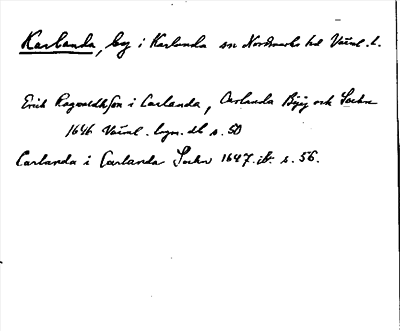 Karlanda, by i Karlanda sn Nordmarks hd Värml. l.
Erik Ragvaldhson i Carlanda, Carlanda Bÿÿ och Sochn
1646 Värml. lagm. db s. 50
Carlanda i Carlanda Sochn 1647. ib. s. 56.